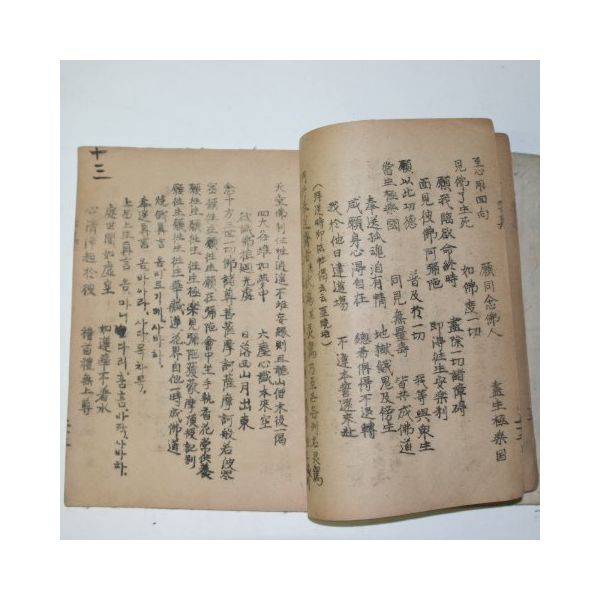 至心用回向 願同念佛人 盡生極樂国
見佛了生死 如佛度一切
願我臨欲命終時 盡除一切諸障碍
面見彼佛阿彌陀 即得往生安樂刹
願以此功德 普及於一切 我等與衆生
當生極樂國 同見無量壽 皆共成佛道
奉送孤魂洎有情 地獄餓鬼及傍生
咸願身心得自在 總希俱得不退轉
我於他日建道場 不違本誓還來赴
天堂佛刹任性逍遙不能安緣則且聽山僧末後一偈
四大各離如夢中 六塵心識本來空
欲識佛祖廻光處 日落西山月出東
念十方三世一切佛諸尊菩薩摩訶薩摩訶般若波羅
蜜願往生願往生願在彌陀會中坐手執香花常供養
願往生願往生往生極樂見彌陀獲蒙摩頂授記別
願往生願往生往生華藏蓮花界自他一時成佛道
燒錢眞言 옴비로기제 사바하
奉送眞言 옴 바아라 사다 목차목
上品上生眞言 옴 마니다리 훔훔 바탁 사바하
處世間如虛空 如蓮華不着水
心淸淨超於彼 稽首禮無上尊
十三